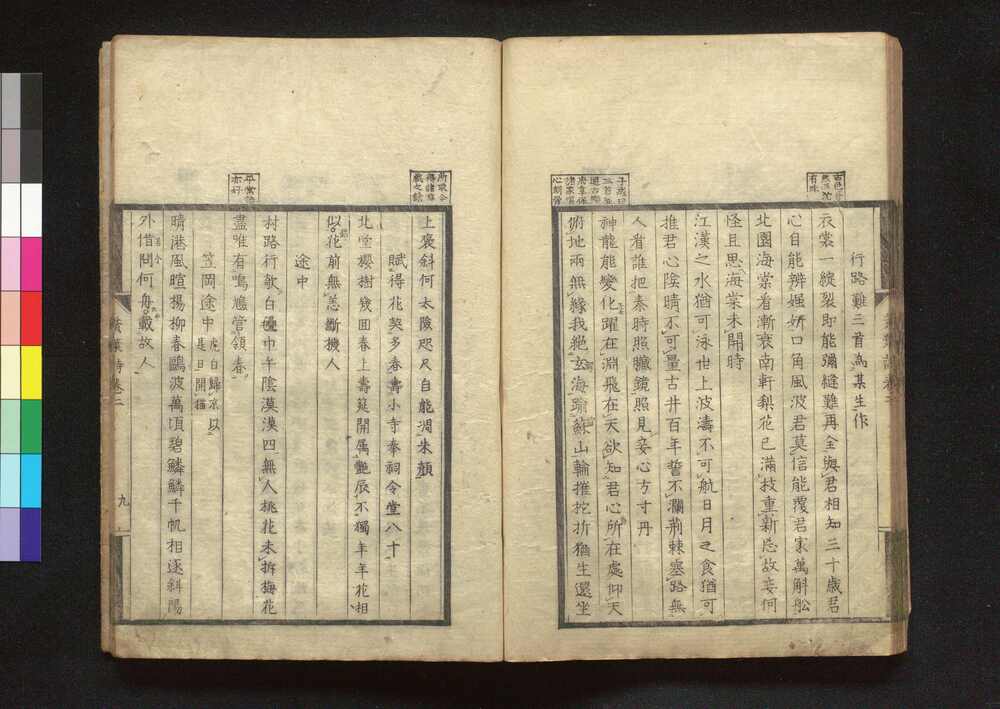 行路難三首為某生作
衣裳一綻裂即能彌縫難再全與君相知三十歲君
心目能辨媸妍口角風波君莫信能覆君家萬斛舩
北園海棠看漸衰南軒梨花已滿枝重新忘故妾何
怪且思海棠未開時
江漢之水猶可泳世上波濤不可航日月之食猶可
推君心陰晴不可量古井百年誓不瀾荊棘塞路無
人看誰把秦時照膽鏡照見妾心方寸丹
神龍能變化躍在淵飛在天欲知君心所在處仰天
俯地兩無緣我絶玄海踰蘇山輪摧柁折猶生還坐
上褒斜何太險咫尺自能凋朱顏
賦得花契多春壽小寺奉祠令堂八十
北堂櫻樹幾回春上壽筵開属艷辰不獨年年花相
似花前無恙斷機人
途中
村路行歌白疊巾午陰漠漠四無人桃花未拆梅花
盡唯有鳴鳩管領春
笠岡途中
虎白歸京以
是日開猫
晴港風暄楊柳春鷗波萬頃碧鱗鱗千帆相逐斜陽
外借問何舟載故人
九